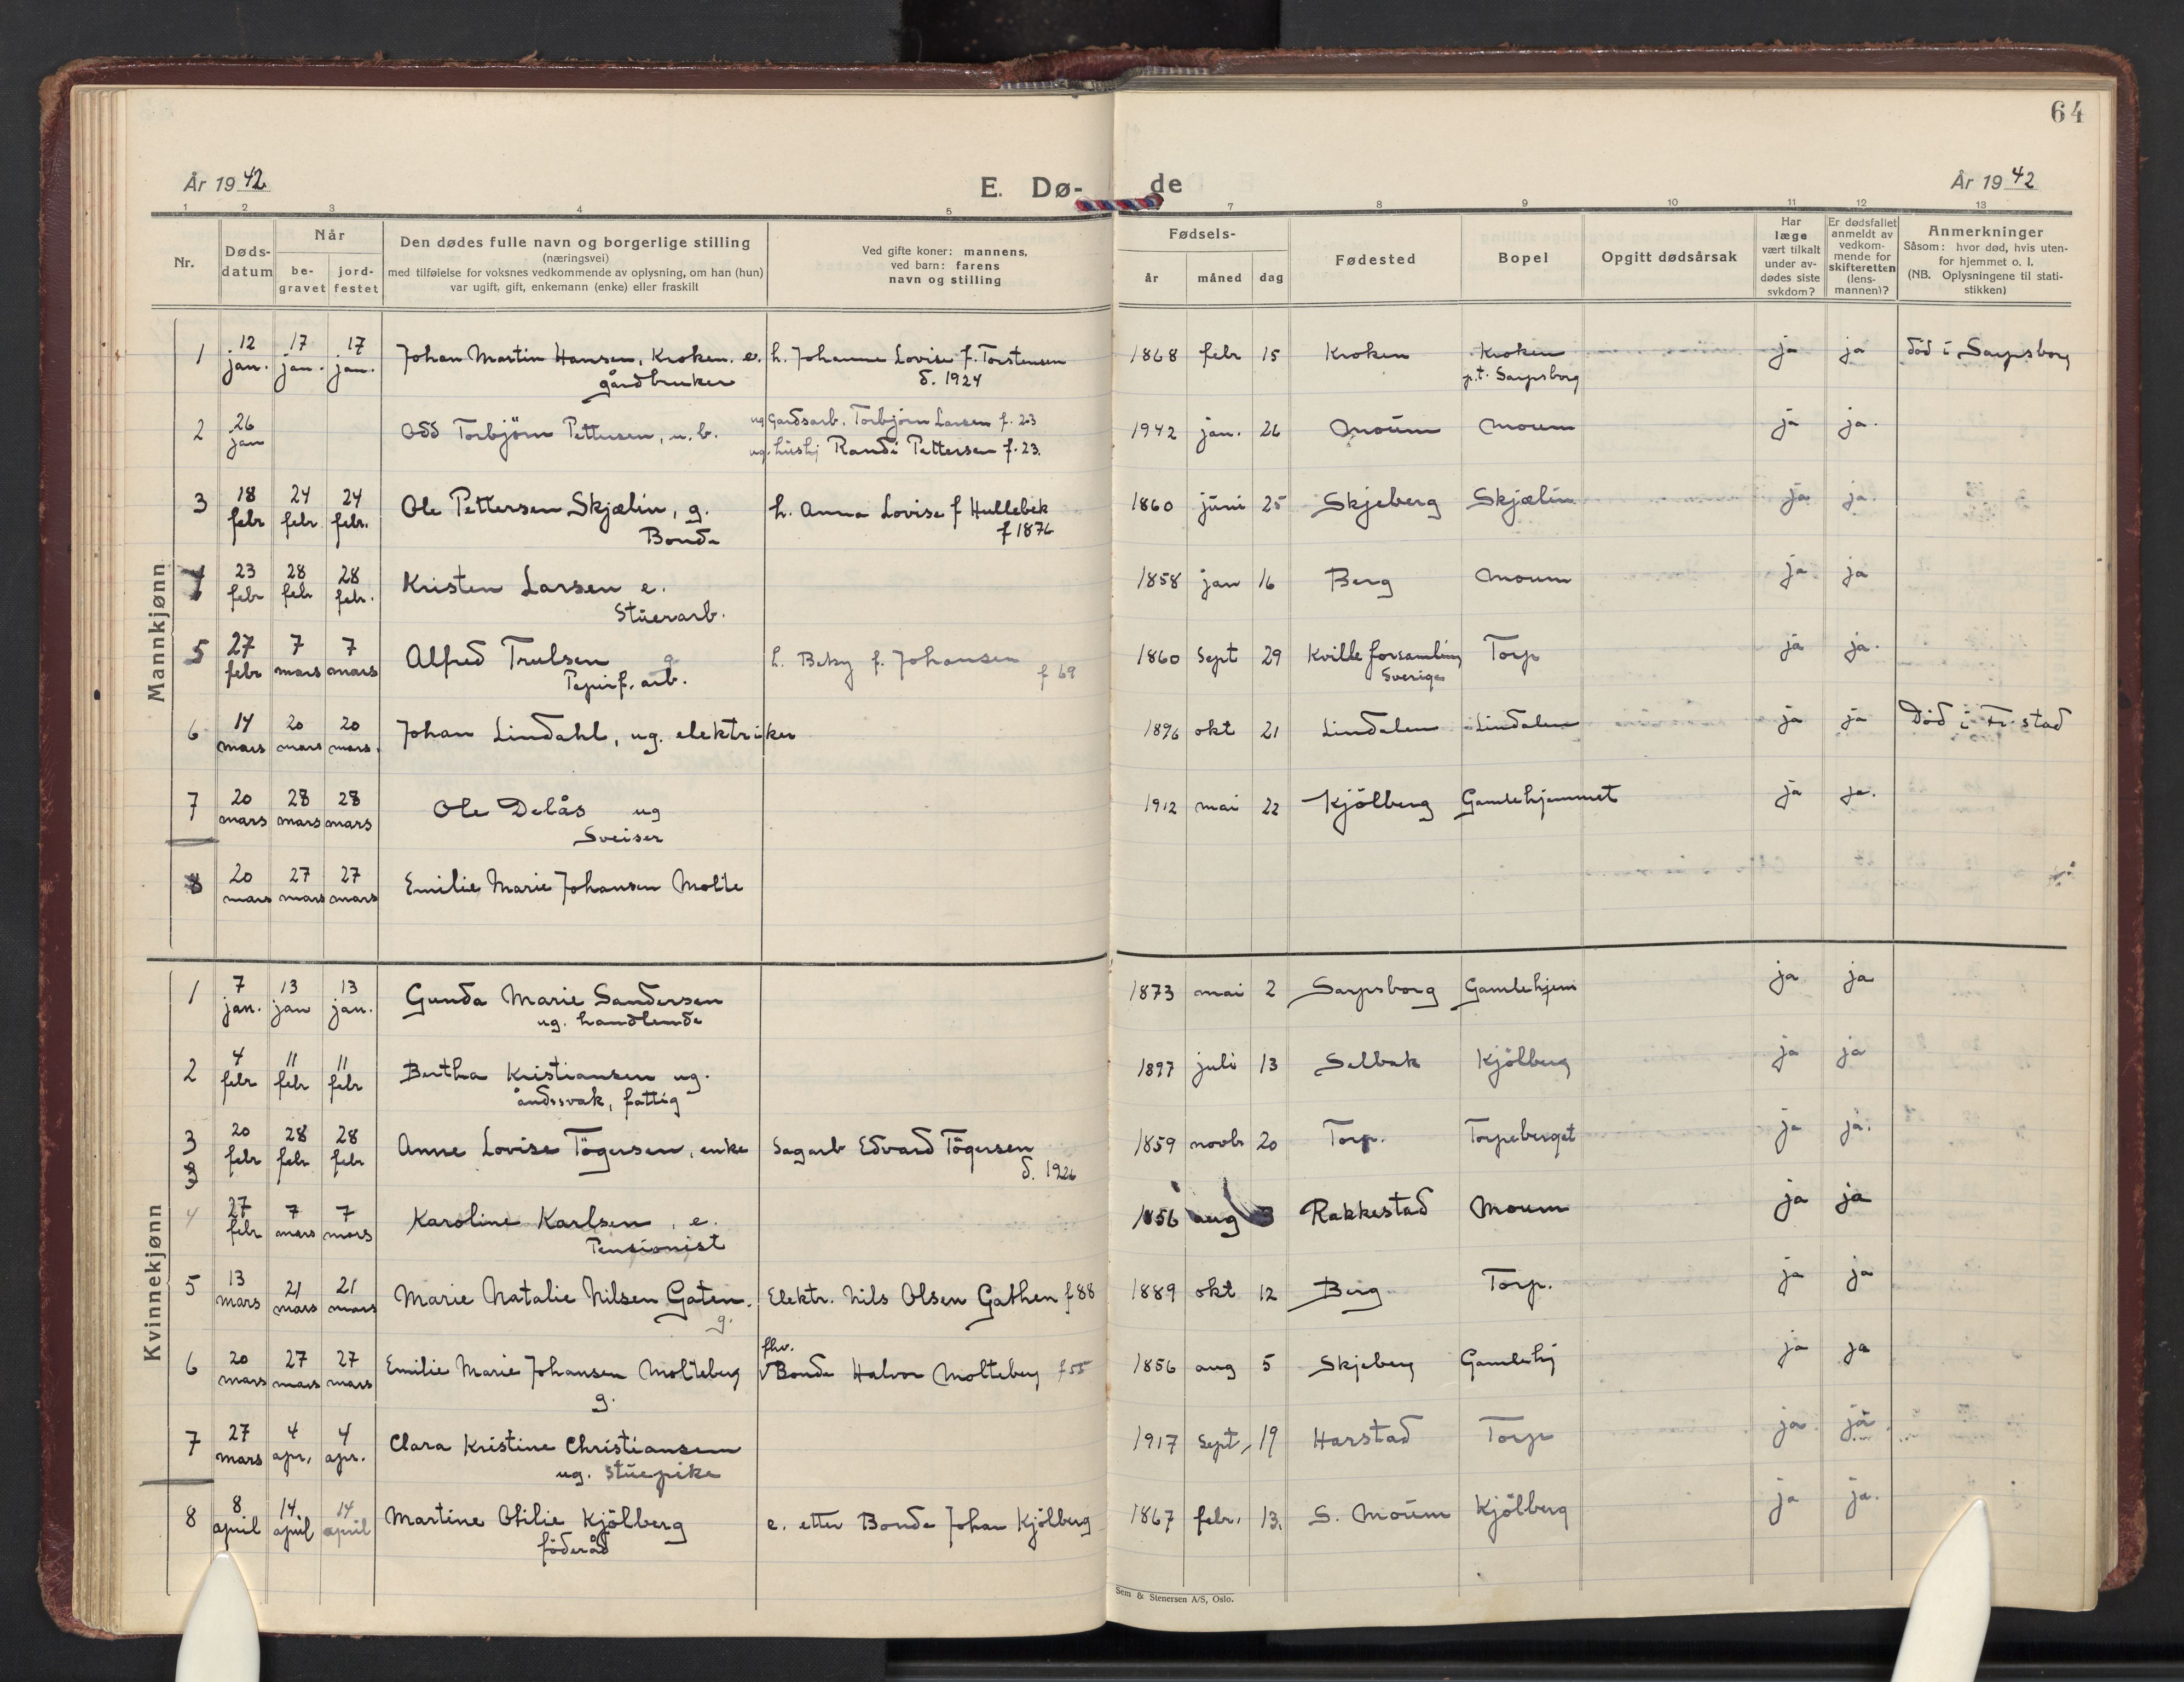 64
År 1942 E. Dø- de År 1942
1 2 3 4 5 7 8 9 10 11 12 13
Nr.
Døds-
datum
Når
be-
gravet
jord-
festet
Den dødes fulle navn og borgerlige stilling
(næringsvei)
med tilføielse for voksnes vedkommende av oplysning, om han (hun)
var ugift, gift, enkemann (enke) eller fraskilt
Ved gifte koner: mannens,
ved barn: farens
navn og stilling
Fødsels-
år måned dag
Fødested
Bopel
Opgitt dødsårsak
Har
læge
vært tilkalt
under av-
dødes siste
sykdom?
Er dødsfallet
anmeldt av
vedkom-
mende for
skifteretten
(lens-
mannen)?
Anmerkninger
Såsom: hvor død, hvis uten-
for hjemmet o. l.
(NB. Oplysningene til stati-
stikken)
Mannkjønn
1 12 17 17 Johan Martin Hansen, Kroken. e. h. Johanne Lovise f. Torstensen 1868 febr 15 Kroken Kroken ja ja død i Sarpsborg
jan. jan. jan. gårdbruker d. 1924 p.t. Sarpsborg
2 26 Odd Torbjörn Pettersen, u. b. ug Gardsarb. Torbjörn Larsen f. 23 1942 jan. 26 Moum Moum ja ja.
jan ug. hushj Randi Pettersen f. 23.
3 18 24 24 Ole Pettersen Skjælin, g. h. Anna Lovise f Hullebek 1860 juni 25 Skjeberg Skjælin ja ja.
febr febr. febr. Bonde f 1876
23 28 28 Kristen Larsen e. 1858 jan 16 Berg Moum ja ja
febr febr febr. Stuerarb.
5 27 7 7 Alfred Trulsen g h. Betsy f. Johansen f 69 1860 Sept 29 Kville forsamling Torp ja ja.
febr mars mars Papirf. arb. Sverige
6 14 20 20 Johan Lindahl, ug. elektriker 1896 okt 21 Lindalen Lindalen ja ja Död i Fr.stad
mars mars mars.
7 20 28 28 Ole Delås ug 1912 mai 22 Kjölberg Gamlehjemmet ja ja.
mars mars mars Sveiser
8 20 27 27 Emilie Marie Johansen Molte
mars mars mars
Kvinnekjønn
1 7 13 13 Gunda Marie Sandersen 1873 mai 2 Sarpsborg Gamlehjem ja ja
jan. jan jan. ug. handlende
2 4 11 11 Bertha Kristiansen ug. 1897 juli 13 Selbak Kjölberg ja ja
febr febr febr åndssvak, fattig
3 20 28 28 Anne Lovise Tögersen, enke Sagarb Edvard Tögersen 1859 novbr 20 Torp. Torpeberget ja ja.
febr febr febr d. 1926
3
4 27 7 7 Karoline Karlsen, e. 1856 aug 3 Rakkestad Moum ja ja
febr mars mars Pensionist
5 13 21 21 Marie Natalie Nilsen Gaten. Elektr. Nils Olsen Gathen f 88 1889 okt 12 Berg Torp. ja ja
mars mars mars g.
fhv.
6 20 27 27 Emilie Marie Johansen Molteberg Bonde Halvor Molteberg f 55 1856 aug 5 Skjeberg Gamlehj ja ja
mars mars mars g.
7 27 4 4 Clara Kristine Christiansen 1917 Sept, 19 Harstad Torp ja ja
mars apr, apr. ug. stuepike
8 8 14 14 Martine Otilie Kjölberg e. etter Bonde Johan Kjölberg 1867 febr. 13. S. Moum Kjölberg ja ja.
april april april föderåd
Sem & Stenersen A/S, Oslo.